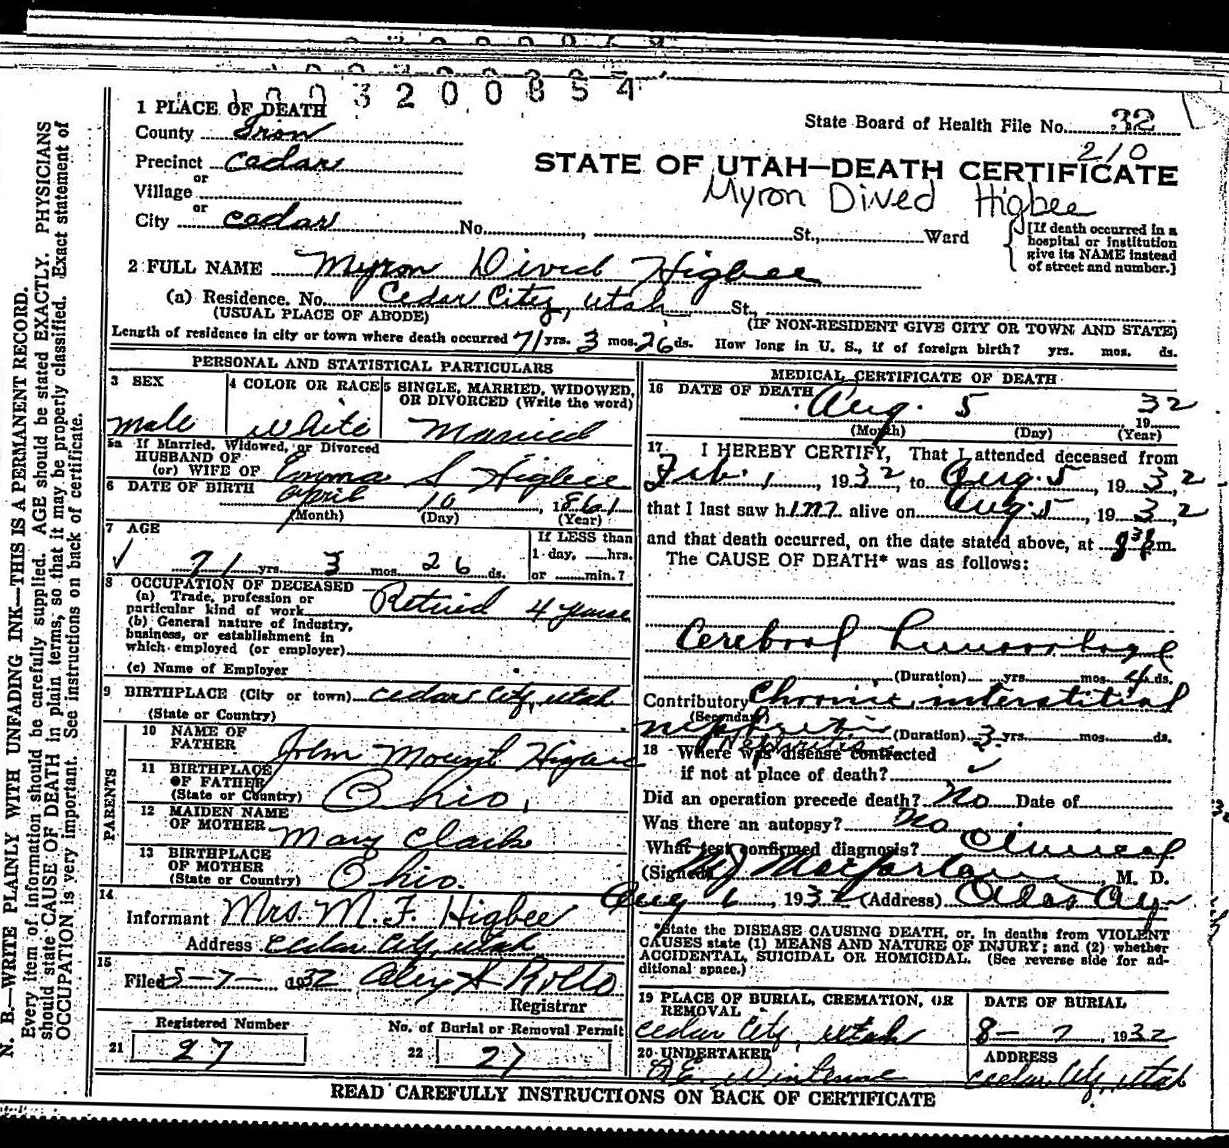 1 0 0 3 2 0 0 8 5 4
1 PLACE OF DEATH
County Iron
Precinct Cedar
or
Village
or
City Cedar No. , St., Ward
State Board of Health File No. 32
210
STATE OF UTAH—DEATH CERTIFICATE
Myron Dived Higbee
[If death occurred in a
hospital or institution
give its NAME instead
of street and number.]
2 FULL NAME Myron Dived Higbee
(a) Residence. No. Cedar City, Utah St.,
(USUAL PLACE OF ABODE) (IF NON-RESIDENT GIVE CITY OR TOWN AND STATE)
Length of residence in city or town where death occurred 71 yrs. 3 mos. 26 ds. How long in U. S., if of foreign birth? yrs. mos. ds.
PERSONAL AND STATISTICAL PARTICULARS
3 SEX
male
4 COLOR OR RACE
White
5 SINGLE, MARRIED, WIDOWED,
OR DIVORCED (Write the word)
Married
5a If Married, Widowed, or Divorced
HUSBAND OF
(or) WIFE OF Emma S Higbee
6 DATE OF BIRTH April 10, 1861
(Month) (Day) (Year)
7 AGE
71 yrs. 3 mos. 26 ds.
If LESS than
1 day, hrs.
or min.?
8 OCCUPATION OF DECEASED
(a) Trade, profession or
particular kind of work Retired 4 years
(b) General nature of Industry,
business, or establishment in
which employed (or employer)
(c) Name of Employer
9 BIRTHPLACE (City or town) Cedar City, Utah
(State or Country)
PARENTS
10 NAME OF
FATHER John Mount Higbee
11 BIRTHPLACE
OF FATHER
(State or Country) Ohio.
12 MAIDEN NAME
OF MOTHER Mary Clark
13 BIRTHPLACE
OF MOTHER
(State or Country) Ohio.
14
Informant Mrs. M. F. Higbee
Address Cedar City, Utah
15
Filed 5-7- 1932 Alex H Rollo
Registrar
Registered Number
21 27
No. of Burial or Removal Permit
22 27
MEDICAL CERTIFICATE OF DEATH
16 DATE OF DEATH
Aug. 5 1932
(Month) (Day) (Year)
17 I HEREBY CERTIFY, That I attended deceased from
Feb. 1, 1932, to Aug. 5, 1932,
that I last saw him alive on Aug. 5, 1932
and that death occurred, on the date stated above, at 8 p.m.
The CAUSE OF DEATH* was as follows:
Cerebral hemorrhage
(Duration) yrs. mos. 4 ds.
Contributory Chronic interstitial
(Secondary)
nephritis (Duration) 3 yrs. mos. ds.
18 Where was disease contracted
if not at place of death?
Did an operation precede death? No Date of
Was there an autopsy? No
What test confirmed diagnosis? Clinical
(Signed) Macfarlane, M. D.
Aug 6, 1932 (Address) Cedar City
*State the DISEASE CAUSING DEATH, or, in deaths from VIOLENT
CAUSES state (1) MEANS AND NATURE OF INJURY; and (2) whether
ACCIDENTAL, SUICIDAL OR HOMICIDAL. (See reverse side for ad-
ditional space.)
19 PLACE OF BURIAL, CREMATION, OR
REMOVAL
Cedar City, Utah
DATE OF BURIAL
8- 7, 1932
20 UNDERTAKER
ADDRESS
Cedar City, Utah
READ CAREFULLY INSTRUCTIONS ON BACK OF CERTIFICATE
N. B.—WRITE PLAINLY WITH UNFADING INK—THIS IS A PERMANENT RECORD.
Every item of information should be carefully supplied. AGE should be stated EXACTLY. PHYSICIANS
should state CAUSE OF DEATH in plain terms, so that it may be properly classified. Exact statement of
OCCUPATION is very important. See instructions on back of certificate.